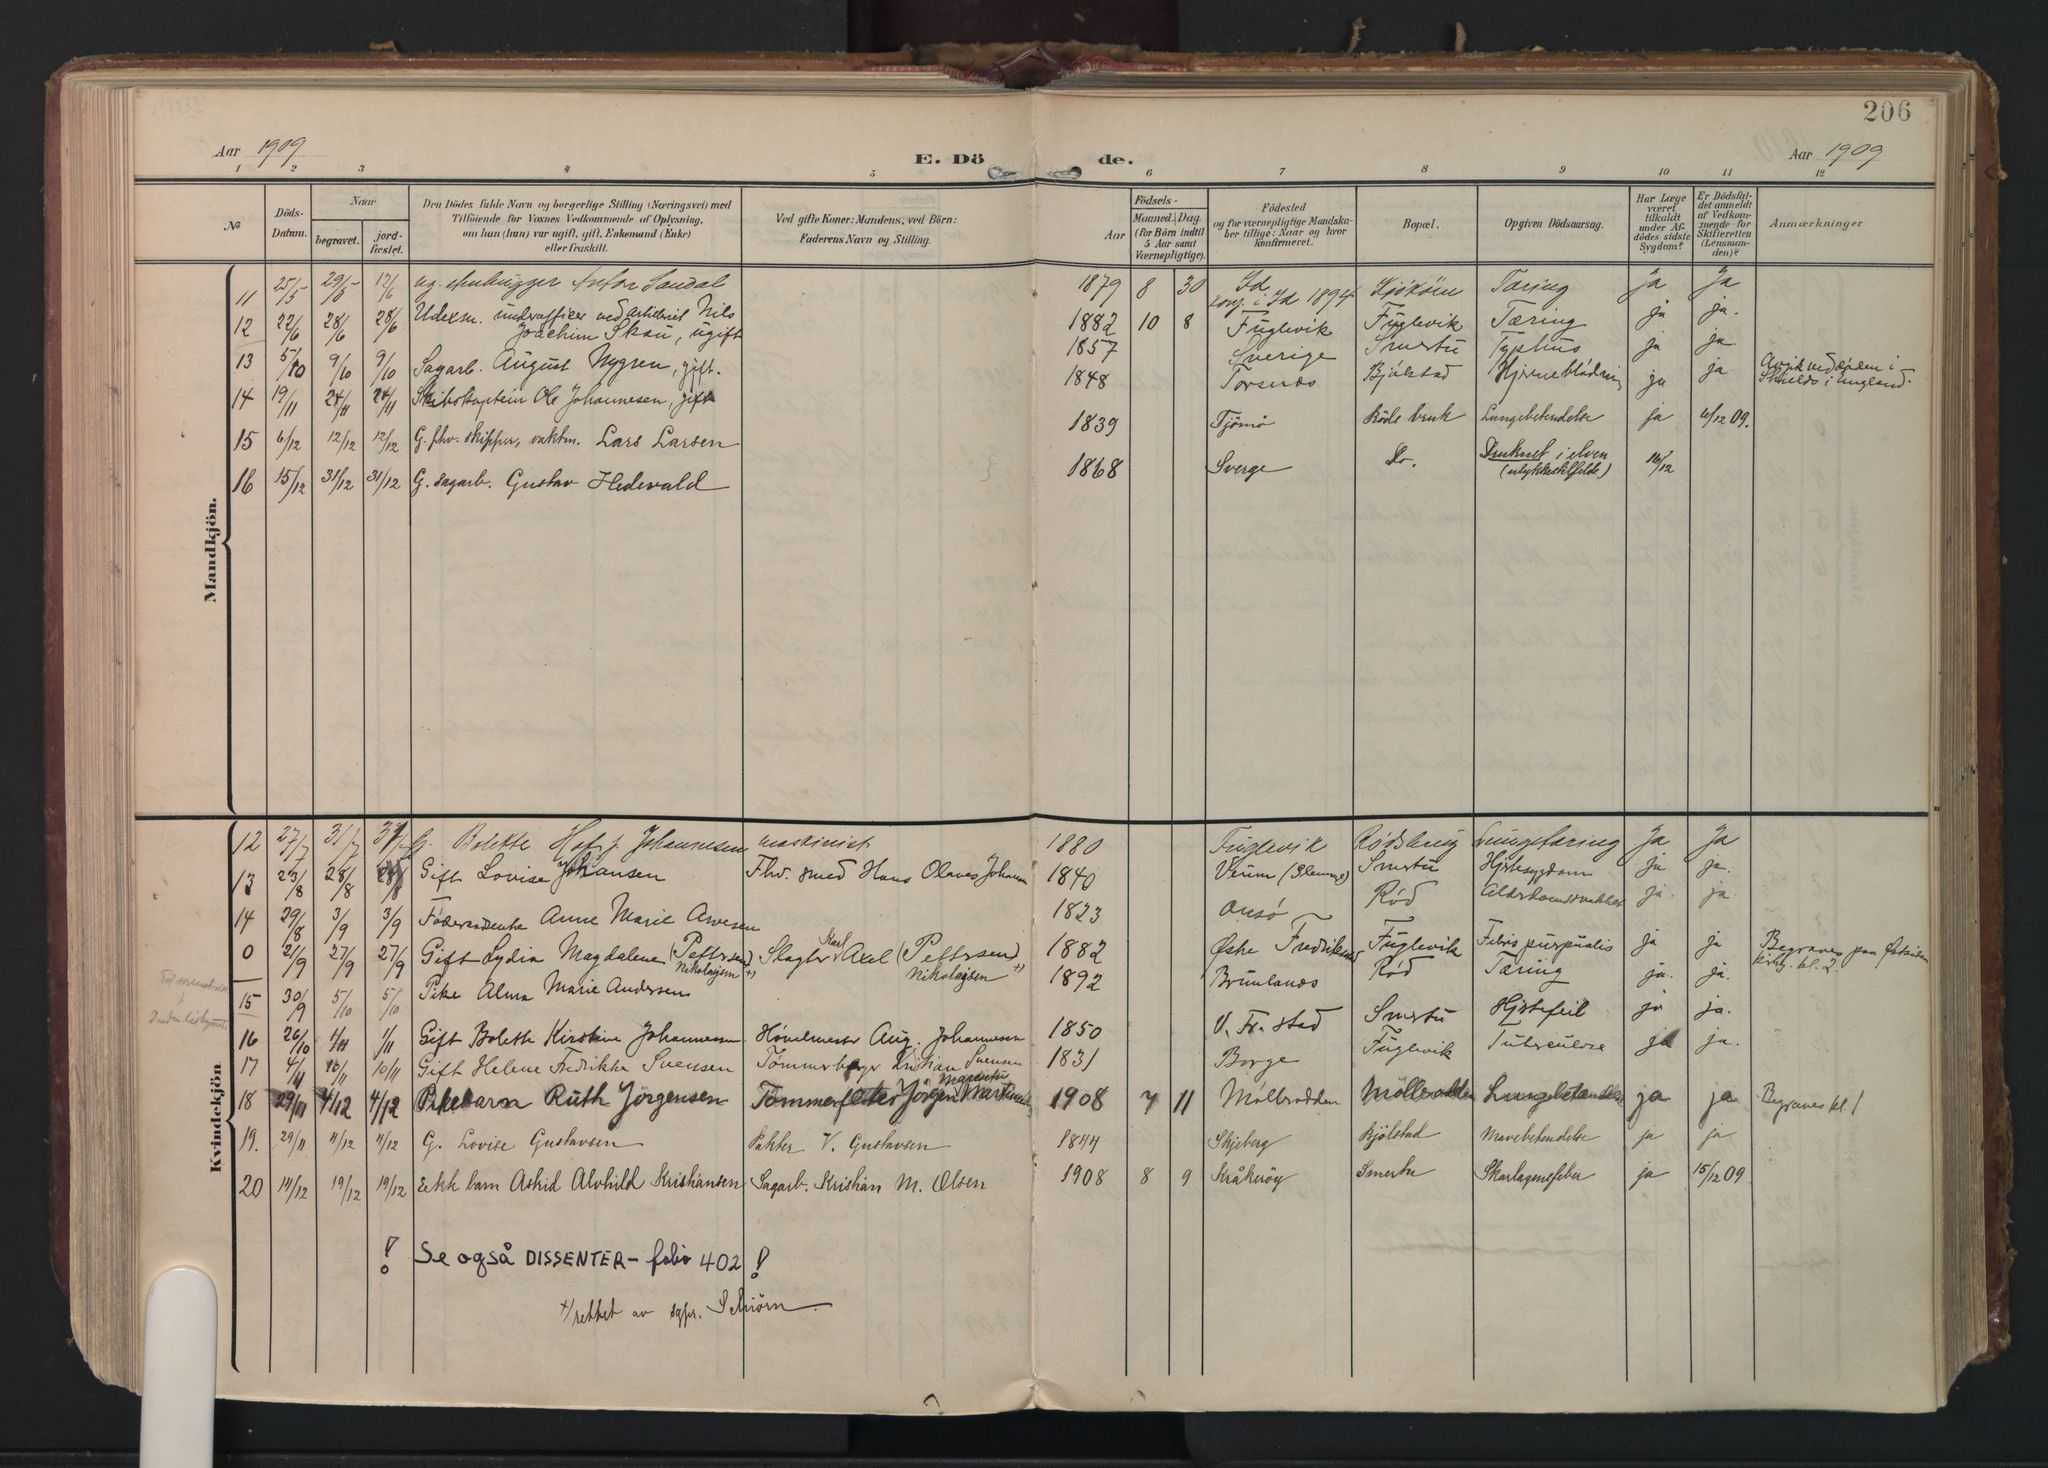 206
Aar 1909 E. Dö de. Aar 1909
1 2 3 4 5 6 7 8 9 10 11 12
№ Döds-Datum. Naar begravet. jord-fæstet. Den Dödes fulde Navn og borgerlige Stilling (Næringsvei) med Tilföiende for Voxnes Vedkommende af Oplysning, om han (hun) var ugift, gift, Enkemand (Enke) eller fraskilt. Ved gifte Koner: Mandens, ved Börn: Faderens Navn og Stilling. Födsels- Aar Maaned. Dag. (for Börn indtil 5 Aar samt Værnepligtige). Födested og for værnepligtige Mandskaber tillige: Naar og hvor konfirmeret. Bopæl. Opgiven Dödsaarsag. Har Læge været tilkaldt under Afdödes sidste Sygdom? Er Dödsfaldet anmeldt af Vedkommende for Skifteretten (Lensmanden)? Anmærkninger
Mandkjön.
11 25/5 29/5 12/6 ug. stenhugger Anton Sandal 1879 8 30 Id conf. i Id 1894 Kjøkøen Tæring Ja Ja
12 22/6 28/6 28/6 Udexm. underofficer ved Artilleriet Nils Joachim Skau, ugift 1882 10 8 Fuglevik Fuglevik Tæring ja ja.
13 5/10 9/10 9/10 Sagarb. August Nygren, gift. 1857 Sverige Smertu Typhus ja ja.
14 19/11 24/11 24/11 Skibskaptein Ole Johannesen, gift 1848 Torsnæs Bjølstad Hjerneblödning ja ja Avgik ved døden i Shields i England.
15 6/12 12/12 12/12 G. fhv. skipper, vaktm. Lars Larsen 1839 Tjömö Röds bruk Lungebetendelse ja 6/12 09.
16 15/12 31/12 31/12 G. sagarb. Gustav Hedevald 1868 Sverge Do. Druknet i elven (ulykkestilfælde) 16/12
Kvindekjön
12 27/7 31/7 31/7 G. Bolette Johannesen maskinist 1880 Fuglevik Rødsberg Lungetæring Ja Ja
13 23/8 28/8 28/8 Gift Lovise Johansen Fhv. smed Hans Olaves Johansen 1840 Veum (Glemmen) Smertu Hjertesygdom ja ja.
14 29/8 3/9 3/9 Føderaadsenke Anne Marie Arvesen 1823 Onsö Rød Alderdomssvakhet ja. ja.
0 21/9 27/9 27/9 Gift Lydia Magdalene (Pettersen) Nikolaysen +) Slagter Karl Axel (Pettersen) Nikolaysen +) 1882 Østre Fredrikstad Fuglevik Febris puerpualis ja ja Begraves paa Østsiden kirkeg. kl. 2
15 30/9 5/10 5/10 Pike Alma Marie Andersen 1892 Brunlanæs Rød Tæring ja. ja.
16 26/10 1/11 1/11 Gift Bolette Kirstine Johannesen Høvelmester Aug. Johannesen 1850 V. Fr.stad Smertu Hjertefeil ja ja.
17 4/11 10/11 10/11 Gift Helene Fredrikke Svensen Tømmerbærer Kristian Svensen 1831 Borge Fuglevik Tuberculose ja ja.
18 29/11 4/12 4/12 Pikebarn Ruth Jörgensen Tømmerfløter Jörgen Marentius Martinsen 1908 7 11 Mølbrodden Møllerodden Lungebetændelse ja ja Begraves kl. 1
19. 29/11 4/12 4/12 G. Lovise Gustavsen Pakker V. Gustavsen 1844 Skjeberg Bjölstad Mavebetendelse ja ja
20 14/12 19/12 19/12 Ekte barn Astrid Alvhild Kristiansen Sagarb. Kristian M. Olsen 1908 8 9 Kråkeröy Smertu Skarlagensfeber ja 15/12 09
! Se også DISSENTER – folio 402 !
+) rettet av sgpr. Schiörn.